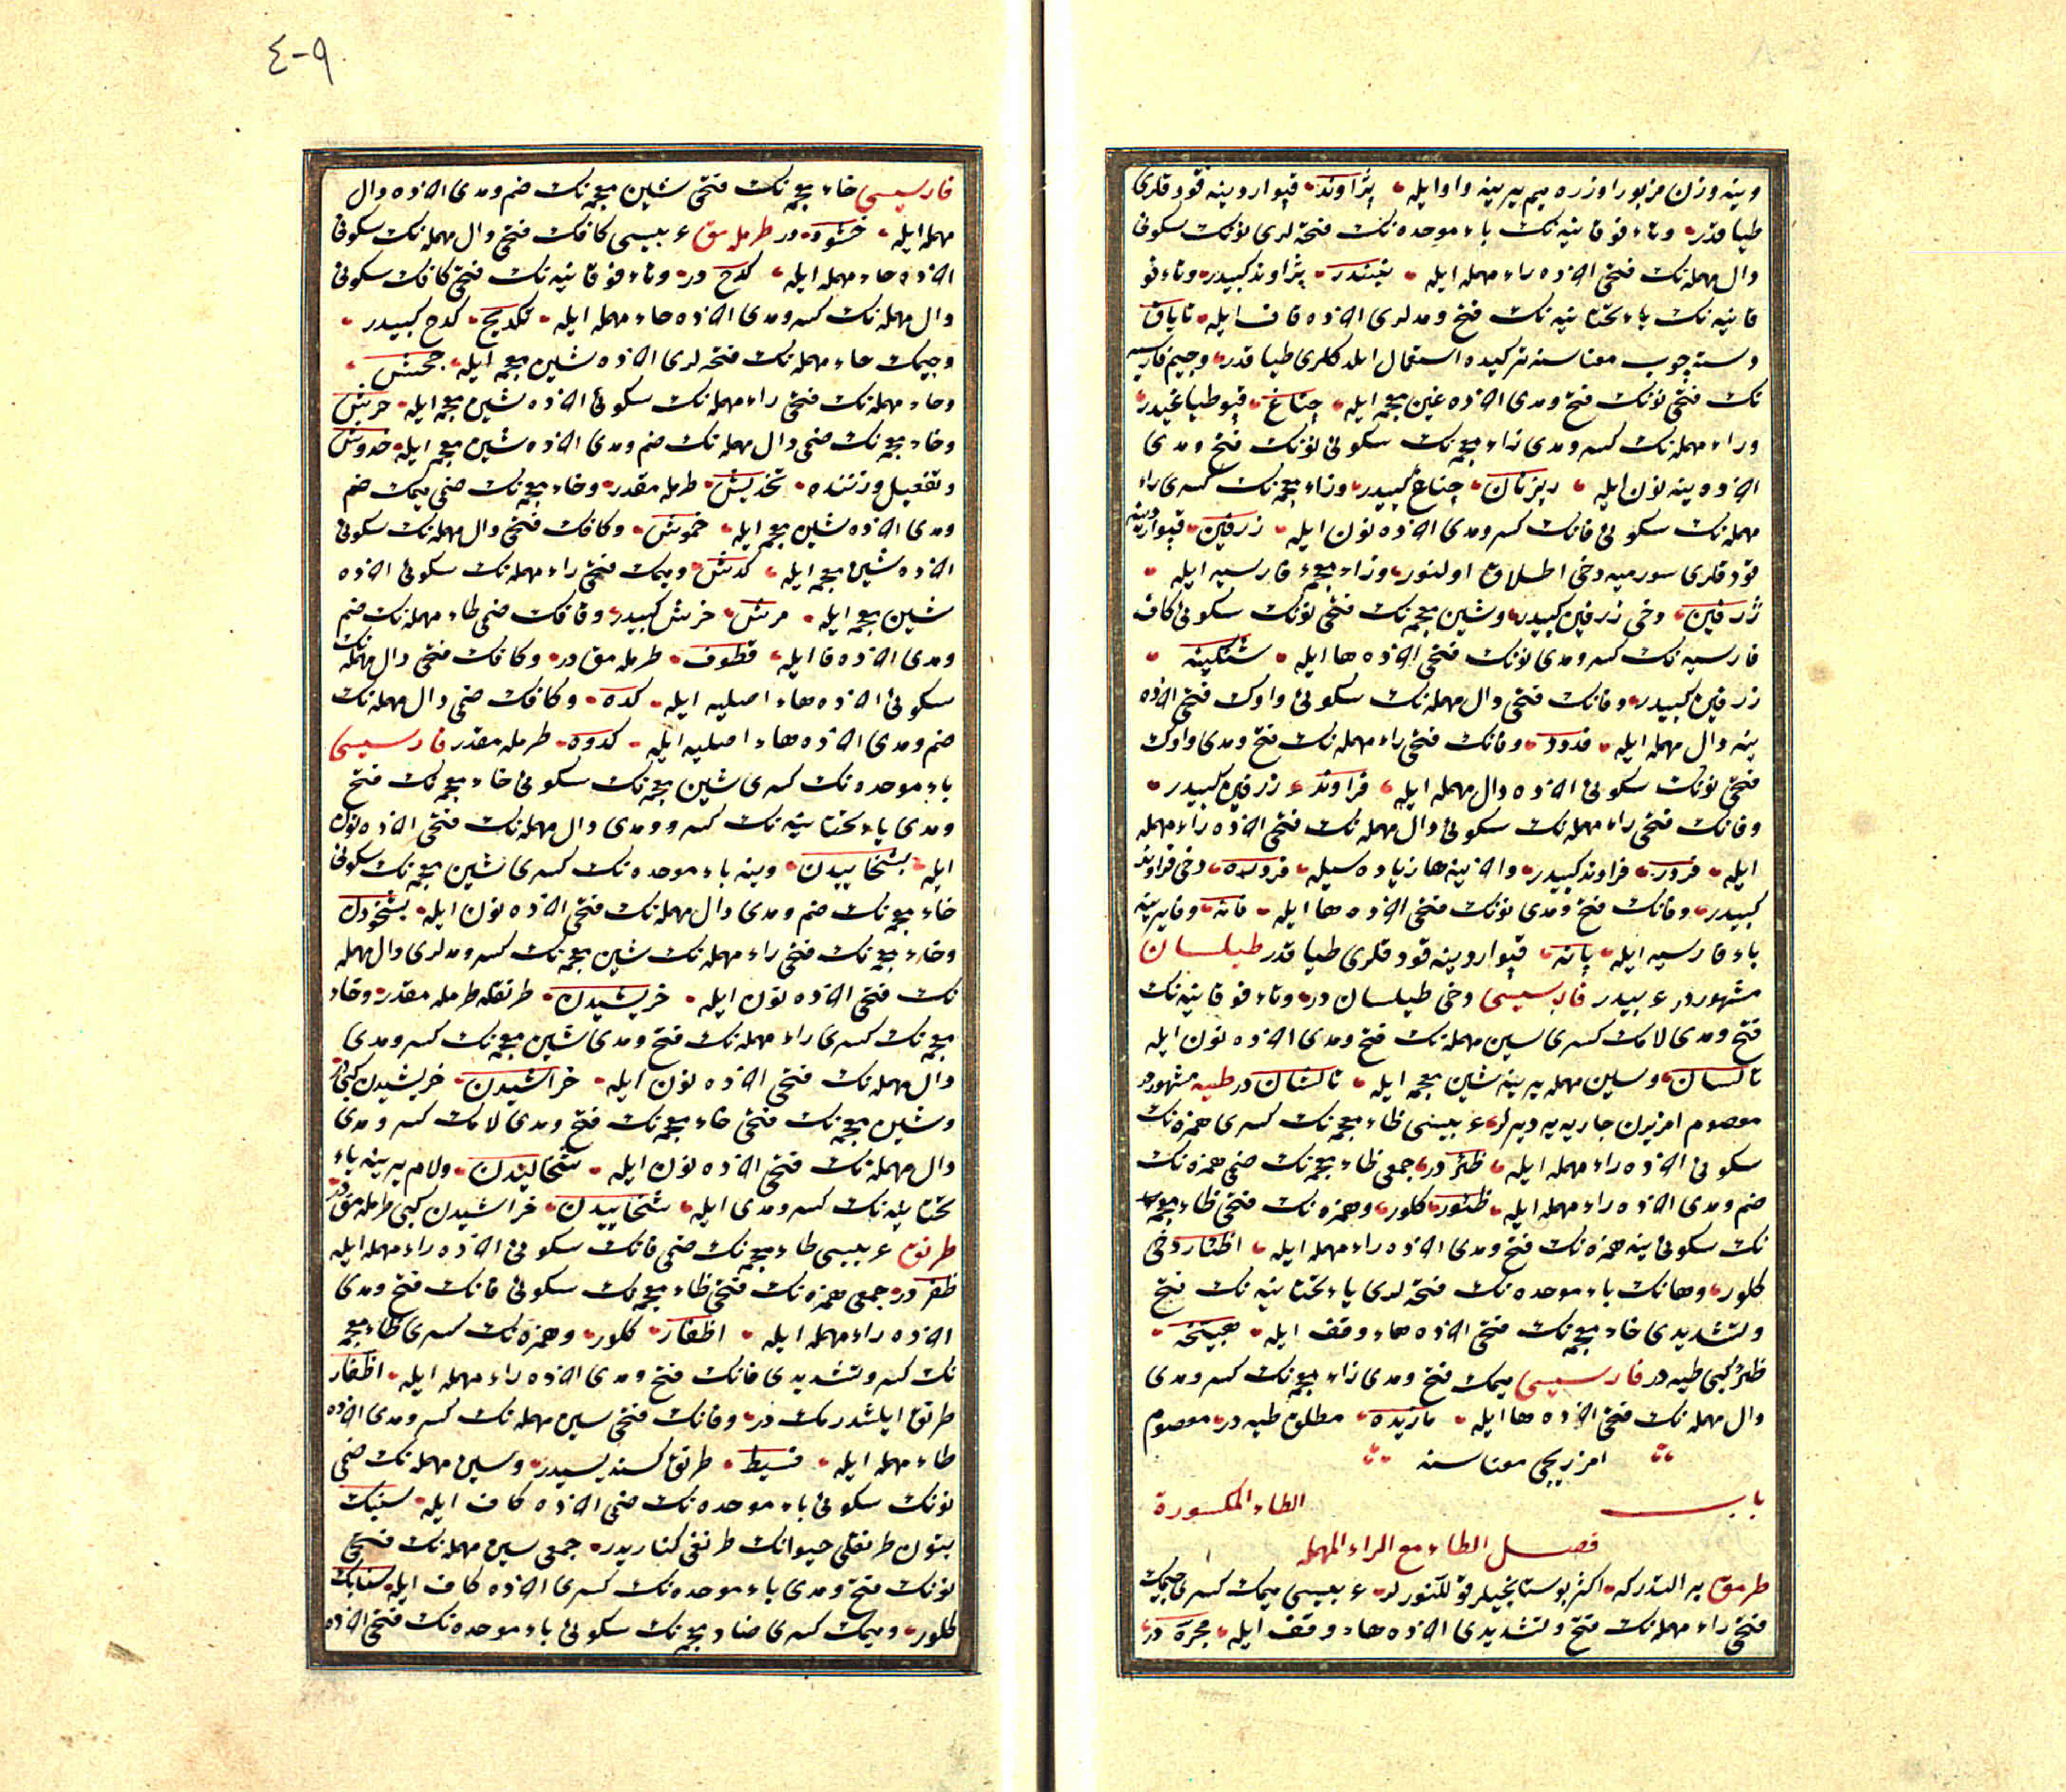 وینه وزن مزبور اوزره میم یرینه واو ایله پژاوند قپو اردینه قودقلری
طیاقدر وتاء فوقانیه نك باء موحده نك فتحه لری نونك سکونی
دال مهمله نك فتحی اخرنده راء مهمله ایله پژاوند کبیدر وتاء فو
قانیه نك یاء تحتانیه نك فتح ومدلری اخرنده قاف ایله تایاق
دسته چوب معناسنه ترکیده استعمال ایلدکلری طیاقدر وجیم فارسیه
نك فتحی نونك فتح ومدی اخرنده غین معجمه ایله چناغ قپو طیاغیدر
وراء مهمله نك کسر ومدی زاء معجمه نك سکونی نونك فتح ومدی
اخرنده ینه نون ایله ریزنان چناغ کبیدر وزاء معجمه نك کسری راء
مهمله نك سکونی فانك کسر ومدی اخرنده نون ایله زرفین قپو اردینه
قودقلری سورمیه دخی اطلاق اولنور وزاء معجمۀ فارسیه ایله
ژرفین دخی زرفین کبیدر وشین معجمه نك فتحی نونك سکونی کاف
فارسیه نك کسر ومدی نونك فتحی اخرنده ها ایله شنگینه
زرفین کبیدر وفانك فتحی دال مهمله نك سکونی واوك فتحی اخرنده
ینه دال مهمله ایله فدود وفانك فتحی راء مهمله نك فتح ومدی واوك
فتحی نونك سکونی اخرنده دال مهمله ایله فراوند زرفین کبیدر
وفانك فتحی راء مهمله نك سکونی دال مهمله نك فتحی اخرنده راء مهمله
ایله فرور فراوند کبیدر واخرینه ها زیاده سیله دخی فراوند
کبیدر وفانك فتح ومدی نونك فتحی اخرنده ها ایله فانه وفا یرینه
باء فارسیه ایله پانه قپو اردینه قودقلری طیاقدر طیلسان
مشهوردر عربیدر فارسیسی دخی طیلساندر وتاء فوقانیه نك
فتح ومدی لامك کسری سین مهمله نك فتح ومدی اخرنده نون ایله
تالسان وسین مهمله یرینه شین معجمه ایله تالشاندر طیه مشهوردر
معصوم امزیرن جاریه یه دیرلر عربیسی ظاء معجمه نك کسری همزه نك
سکونی اخرنده راء مهمله ایله ظئردر جمعی ظاء معجمه نك ضمی همزه نك
ضم ومدی اخرنده راء مهمله ایله ظئور کلور وهمزه نك فتحی ظاء معجمه
نك سکونی ینه همزه نك فتح ومدی اخرنده راء مهمله ایله اظئار دخی
کلور وهانك باء موحده نك فتحه لری یاء تحتانیه نك فتح
وتشدیدی خاء معجمه نك فتحی اخرنده هاء وقف ایله هبیخه
ظئر کبی طیه در فارسیسی میمك فتح ومدی زاء معجمه نك کسر ومدی
دال مهمله نك فتحی اخرنده ها ایله مازیده مطلق طیه در معصوم
امزیریجی معناسنه
باب الطاء المکسورة
فصل الطاء مع الراء المهمله
طرمق بر التدرکه اکثر بوستانجیلر قوللنورلر عربیسی میمك کسری جیمك
فتحی راء مهمله نك فتح وتشدیدی اخرنده هاء وقف ایله مجرهدر
٤-٩
فارسیسی خاء معجمه نك فتحی شین معجمه نك ضم ومدی اخرنده دال
مهمله ایله خشوددر طرملمق عربیسی کافك فتحی دال مهمله نك سکونی
اخرنده حاء مهمله ایله کدح در وتاء فوقانیه نك فتحی کافك سکونی
دال مهمله نك کسر ومدی اخرنده حاء مهمله ایله تکدیح کدح کبیدر
وجیمك حاء مهمله نك فتحه لری اخرنده شین معجمه ایله جحش
وحاء مهمله نك فتحی راء مهمله نك سکونی اخرنده شین معجمه ایله حرش
وخاء معجمه نك ضمی دال مهمله نك ضم ومدی اخرنده شین معجمه ایله خدوش
وتفعیل وزننده تخدیش طرملمقدر وخاء معجمه نك ضمی میمك ضم
ومدی اخرنده شین معجمه ایله خموش وکافك فتحی دال مهمله نك سکونی
اخرنده شین معجمه ایله کدش ومیمك فتحی راء مهمله نك سکونی اخرنده
شین معجمه ایله مرش خرش کبیدر وقافك ضمی طاء مهمله نك ضم
ومدی اخرنده فا ایله قطوف طرملمقدر وکافك فتحی دال مهمله نك
سکونی اخرنده هاء اصلیه ایله کده وکافك ضمی دال مهمله نك
ضم ومدی اخرنده هاء اصلیه ایله کدوه طرملمقدر فارسیسی
باء موحده نك کسری شین معجمه نك سکونی خاء معجمه نك فتح
ومدی یاء تحتانیه نك کسر ومدی دال مهمله نك فتحی اخرنده نون
ایله بشخاییدن وینه باء موحده نك کسری شین معجمه نك سکونی
خاء معجمه نك ضم ومدی دال مهمله نك فتحی اخرنده نون ایله بشخودن
وخاء معجمه نك فتحی راء مهمله نك شین معجمه نك کسر ومدلری دال مهمله
نك فتحی اخرنده نون ایله خریشیدن طرنقله طرملمقدر وخاء
معجمه نك کسری راء مهمله نك فتح ومدی شین معجمه نك کسر ومدی
دال مهمله نك فتحی اخرنده نون ایله خراشیدن خریشیدن کبیدر
وشین معجمه نك فتحی خاء معجمه نك فتح ومدی لامك کسر ومدی
دال مهمله نك فتحی اخرنده نون ایله شخالیدن ولام یرینه یاء
تحتانیه نك کسر ومدی ایله شخاییدن خراشیدن کبی طرملمقدر
طرنق عربیسی ظاء معجمه نك ضمی فانك سکونی اخرنده راء مهمله ایله
ظفردر جمعی همزه نك فتحی ظاء معجمه نك سکونی فانك فتح ومدی
اخرنده راء مهمله ایله اظفار کلور وهمزه نك کسری ظاء معجمه
نك کسر وتشدیدی فانك فتح ومدی اخرنده راء مهمله ایله اظفار
طرنق ایلشدرمكدر وفانك فتحی سین مهمله نك کسر ومدی اخرنده
طاء مهمله ایله فسیط طرنق کسندیسیدر وسین مهمله نك ضمی
نونك سکونی باء موحده نك ضمی اخرنده کاف ایله سنبك
بتون طرنقلی حیوانك طرنقی کناریدر جمعی سین مهمله نك فتحی
نونك فتح ومدی باء موحده نك کسری اخرنده کاف ایله سنابك
کلور ومیمك کسری ضاد معجمه نك سکونی باء موحده نك فتحی اخرنده